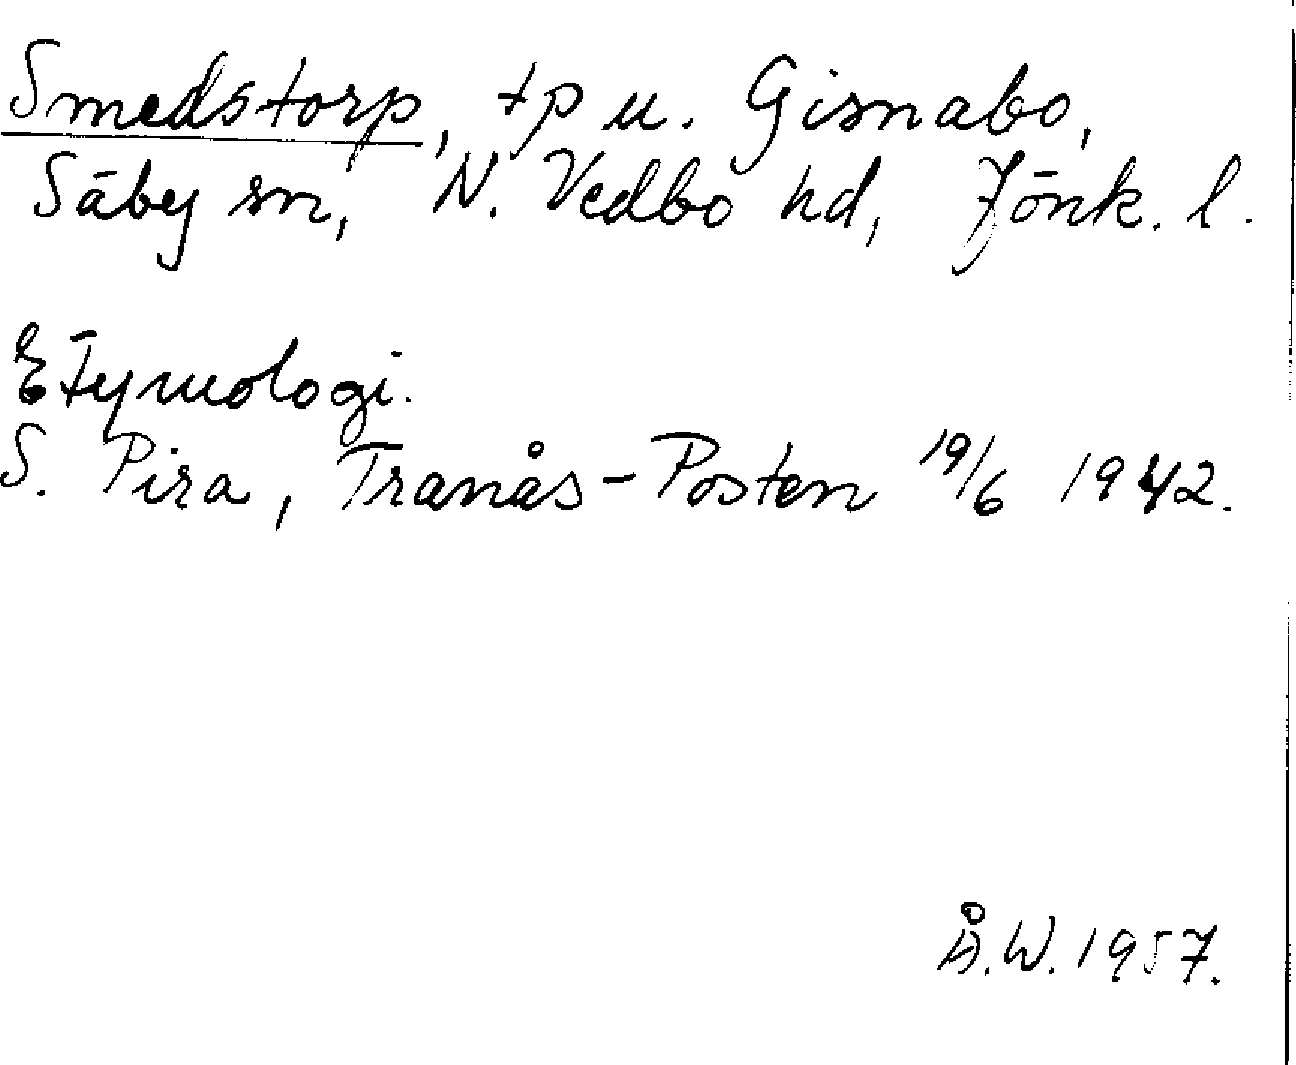 Smedstorp, tp u. Gisnabo,
Säby sn, N. Vedbo hd, Jönk. l.
Etymologi.
S. Pira, Tranås-Posten 19/6 1942.
Å.W. 1957.